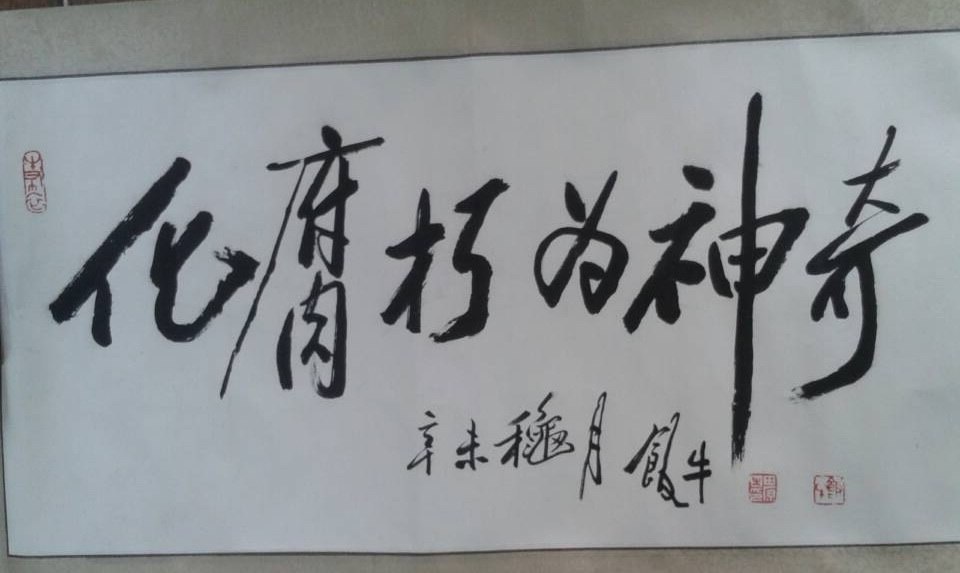 化腐朽为神奇
辛未龝月 飯牛